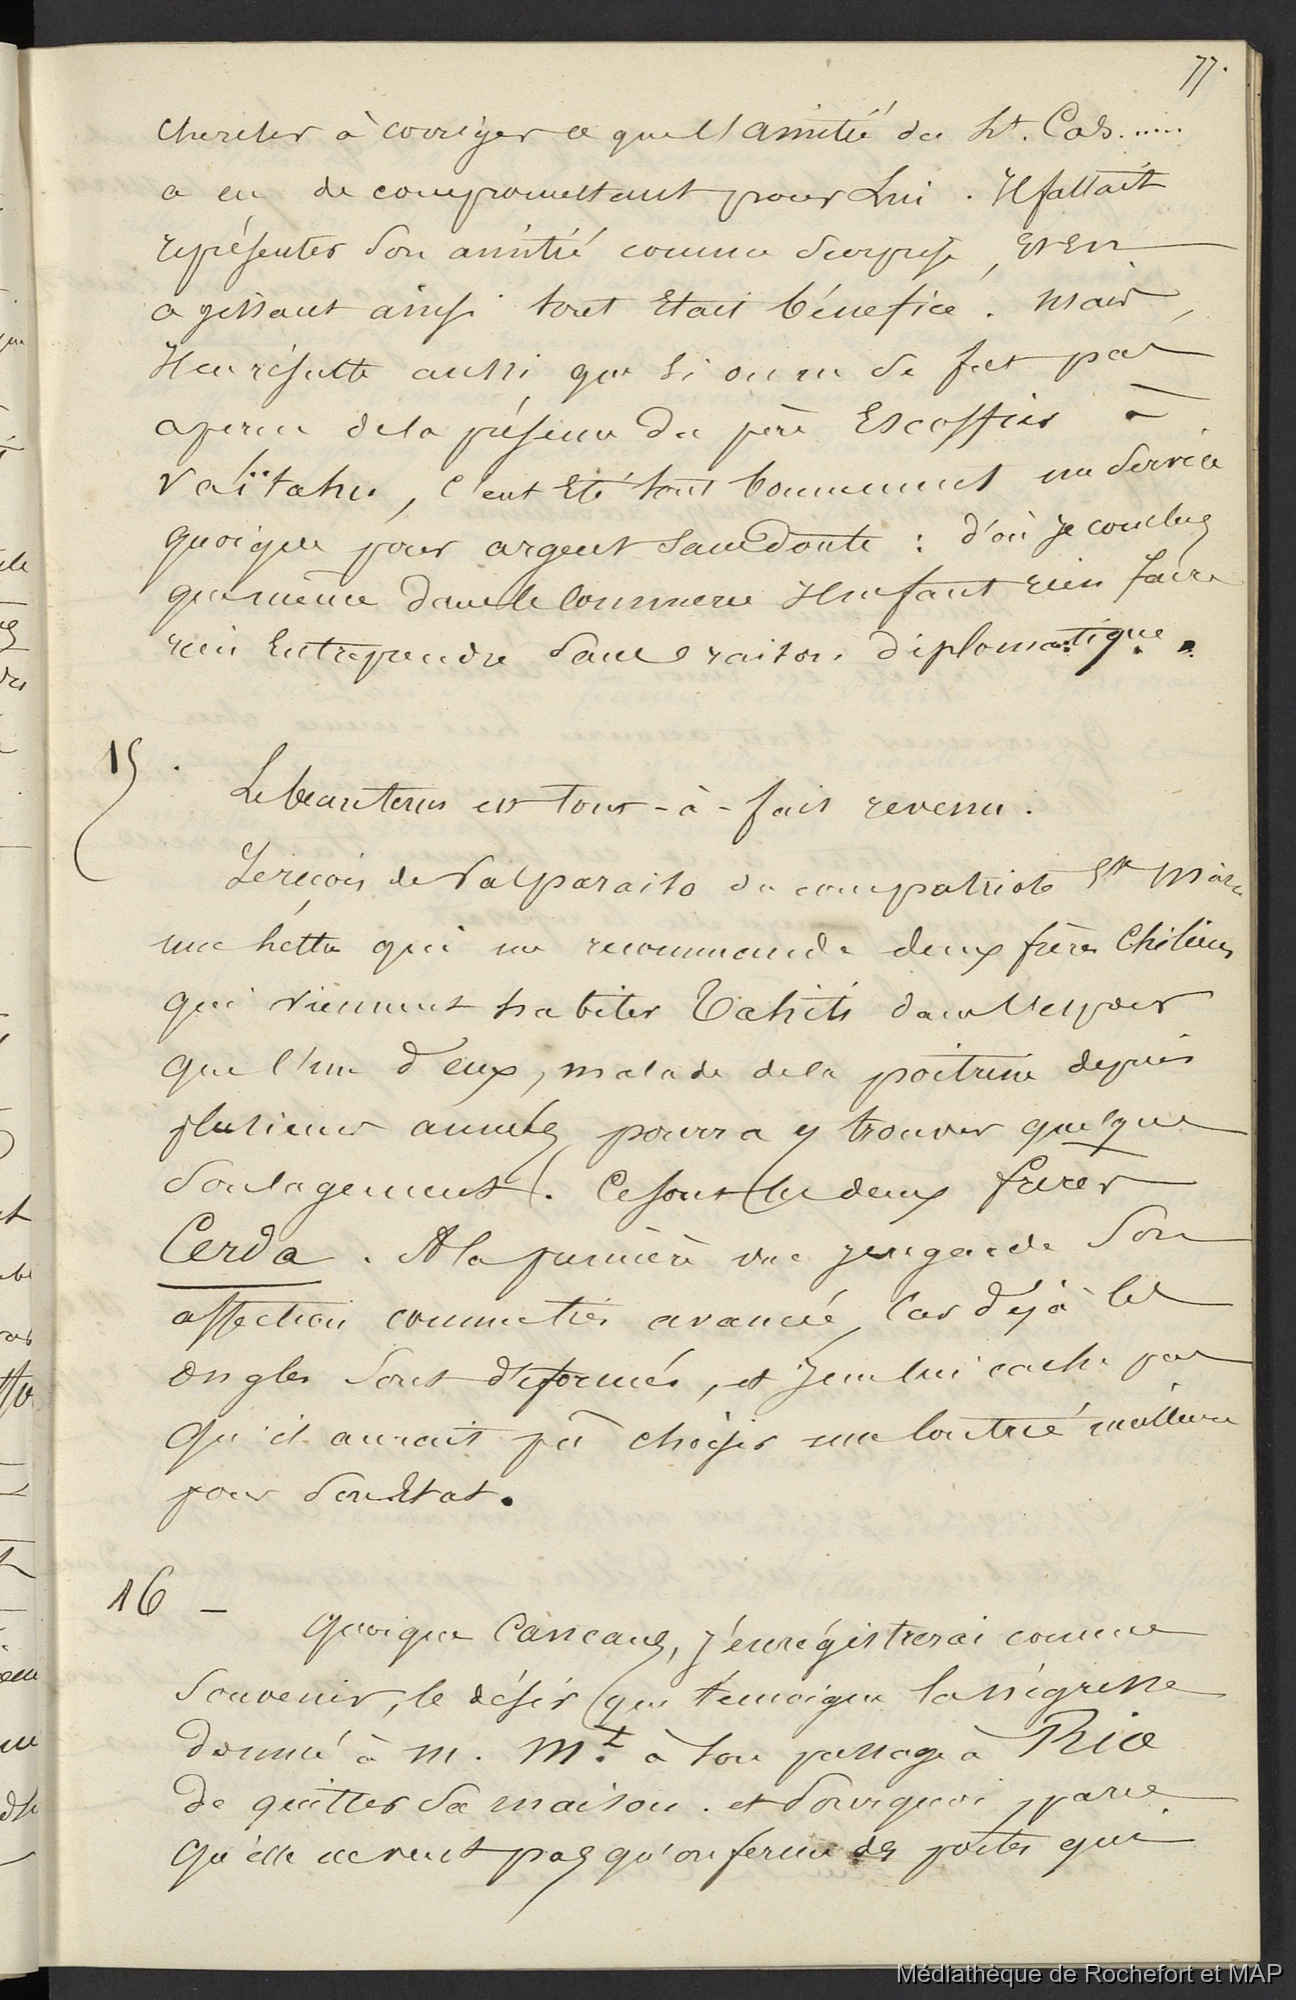 77.
chercher à corriger ce que l'amitié du Lt. Cas.....
a eu de compromettant pour Lui. Il fallait
représenter Son amitié comme Surprise, Et En
agissant ainsi tout Etait bénéfice. Mais,
Il en résulte aussi que Si on ne Se fut pas
aperçu de la présence Du père Escoffier à
Vaïtahu, C'eut Eté tout bonnement un Service
quoique pour argent Sans Doute : d'où Je conclus
que même Dans le Commerce Il ne faut rien faire
rien Entreprendre Sans raison Diplomatique.
15.
Le beau tems est Tout-à-fait revenu.
Je reçois de Valparaiso du compatriote Ste Marie
une lettre qui me recommande deux frères Chiliens
qui viennent habiter Tahiti dans l'espoir
que l'un d'eux, malade de la poitrine depuis
plusieurs années, pourra y trouver quelque
Soulagement. Ce sont les deux frères
Cerda. A la première vue je regarde Son
affection comme très avancée, Car déjà les
ongles Sont déformés, et Je ne lui cache pas
qu'il aurait pû choisir une contrée meilleure
pour Son Etat.
16 -
Quoique Cancans, J'enrégistrerai comme
Souvenir, le désir que témoigne la négresse
Donnée à M. Mt. à Son passage à Rio
De quitter Sa maison. et Pourquoi, parce
qu'elle ne veut pas qu'on ferme des portes qui
Médiathèque de Rochefort et MAP